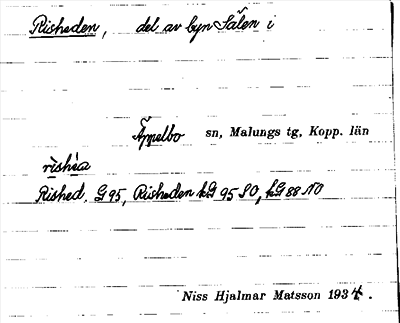 Risheden, del av byn Sälen i
Äppelbo sn, Malungs tg, Kopp. län
rishèa
Rished. G 95, Risheden kG 95 SO, kG 88 NO
Niss Hjalmar Matsson 1934.